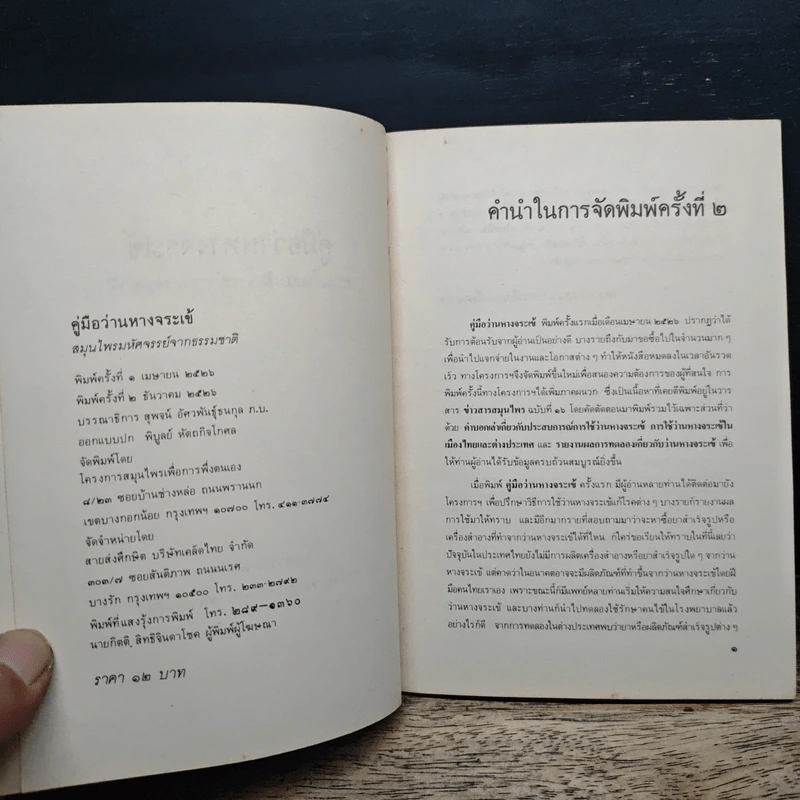 คู่มือว่านหางจระเข้
สมุนไพรมหัศจรรย์จากธรรมชาติ
พิมพ์ครั้งที่ ๑ เมษายน ๒๕๒๖
พิมพ์ครั้งที่ ๒ ธันวาคม ๒๕๒๖
บรรณาธิการ สุพจน์ อัศวพันธุ์ธนกุล ภ.บ.
ออกแบบปก พิบูลย์ หัตถกิจโกศล
จัดพิมพ์โดย
โครงการสมุนไพรเพื่อการพึ่งตนเอง
๘/๒๓ ซอยบ้านช่างหล่อ ถนนพรานนก
เขตบางกอกน้อย กรุงเทพฯ ๑๐๗๐๐ โทร. ๔๑๑-๓๗๗๔
จัดจำหน่ายโดย
สายส่งศึกษิต บริษัทเคล็ดไทย จำกัด
๓๐๓/๗ ซอยสันติภาพ ถนนนเรศ
บางรัก กรุงเทพฯ ๑๐๕๐๐ โทร. ๒๓๓-๒๗๙๒
พิมพ์ที่แสงรุ้งการพิมพ์ โทร. ๒๘๙-๑๓๖๐
นายกิตติ สิทธิจินดาโชค ผู้พิมพ์ผู้โฆษณา
ราคา ๑๒ บาท
คำนำในการจัดพิมพ์ครั้งที่ ๒
คู่มือว่านหางจระเข้ พิมพ์ครั้งแรกเมื่อเดือนเมษายน ๒๕๒๖ ปรากฏว่าได้
รับการต้อนรับจากผู้อ่านเป็นอย่างดี บางรายถึงกับมาขอซื้อไปในจำนวนมาก ๆ
เพื่อนำไปแจกจ่ายในงานและโอกาสต่าง ๆ ทำให้หนังสือหมดลงในเวลาอันรวด
เร็ว ทางโครงการฯจึงจัดพิมพ์ขึ้นใหม่เพื่อสนองความต้องการของผู้ที่สนใจ การ
พิมพ์ครั้งนี้ทางโครงการฯได้เพิ่มภาคผนวก ซึ่งเป็นเนื้อหาที่เคยตีพิมพ์อยู่ในวาร
สาร ข่าวสารสมุนไพร ฉบับที่ ๑๖ โดยคัดตัดตอนมาพิมพ์รวมไว้เฉพาะส่วนที่ว่า
ด้วย คำบอกเล่าเกี่ยวกับประสบการณ์การใช้ว่านหางจระเข้ การใช้ว่านหางจระเข้ใน
เมืองไทยและต่างประเทศ และ รายงานผลการทดลองเกี่ยวกับว่านหางจระเข้ เพื่อ
ให้ท่านผู้อ่านได้รับข้อมูลครบถ้วนสมบูรณ์ยิ่งขึ้น
เมื่อพิมพ์ คู่มือว่านหางจระเข้ ครั้งแรก มีผู้อ่านหลายท่านได้ติดต่อมายัง
โครงการฯ เพื่อปรึกษาวิธีการใช้ว่านหางจระเข้แก้โรคต่าง ๆ บางรายก็รายงานผล
การใช้มาให้ทราบ และมีอีกมากรายที่สอบถามมาว่าจะหาซื้อยาสำเร็จรูปหรือ
เครื่องสำอางที่ทำจากว่านหางจระเข้ได้ที่ไหน ก็ใคร่ขอเรียนให้ทราบในที่นี้เลยว่า
ปัจจุบันในประเทศไทยยังไม่มีการผลิตเครื่องสำอางหรือยาสำเร็จรูปใด ๆ จากว่าน
หางจระเข้ แต่คาดว่าในอนาคตอาจจะมีผลิตภัณฑ์ที่ทำขึ้นจากว่านหางจระเข้โดยฝี
มือคนไทยเราเอง เพราะขณะนี้ก็มีแพทย์หลายท่านเริ่มให้ความสนใจศึกษาเกี่ยวกับ
ว่านหางจระเข้ และบางท่านก็นำไปทดลองใช้รักษาคนไข้ในโรงพยาบาลแล้ว
อย่างไรก็ดี จากการทดลองในต่างประเทศพบว่ายาหรือผลิตภัณฑ์สำเร็จรูปต่าง ๆ
๑